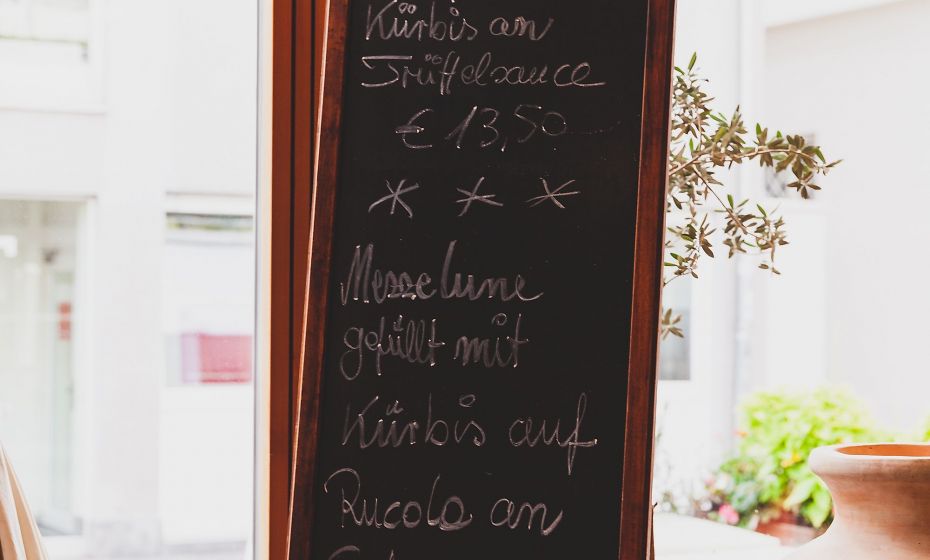 Kürbis an
Trüffelsauce
€ 13,50
* * *
Mezzelune
gefüllt mit
Kürbis auf
Rucola an